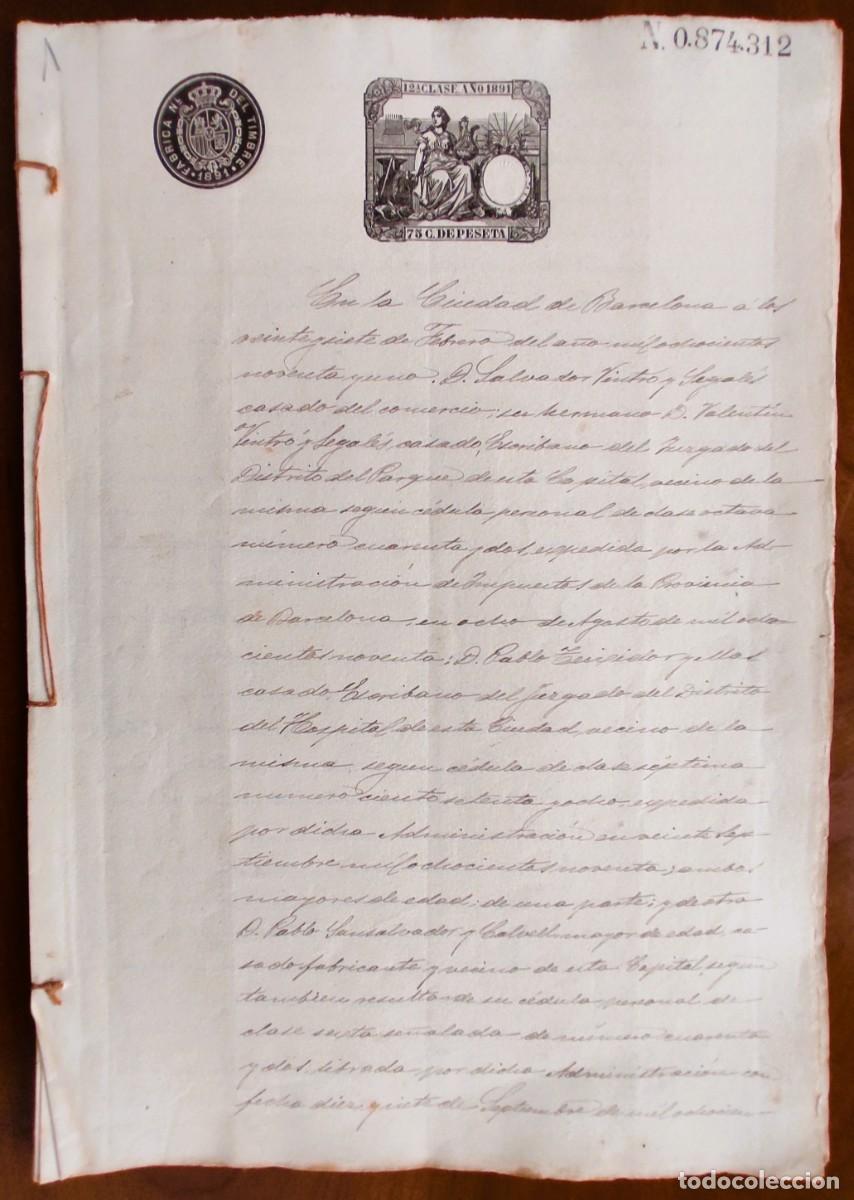 N. 0.874.312
FABRICA Nal DEL TIMBRE
1891
12ª CLASE AÑO 1891
75 C. DE PESETA
En la Ciudad de Barcelona á los
veinte y siete de Febrero del año mil ochocientos
noventa y uno. D. Salvador Vintró y Segalés
casado del comercio; su hermano D. Valentín
Vintró y Segalés, casado, Escribano del Juzgado del
Distrito del Parque de esta Capital, vecino de la
misma segun cédula personal de clase octava
número cuarenta y dos, expedida por la Ad-
ministración de Impuestos de la Provincia
de Barcelona, en ocho de Agosto de mil ocho
cientos noventa; D. Pablo y Mas
casado, Escribano del Juzgado del Distrito
del Hospital de esta Ciudad, vecino de la
misma, segun cédula de clase séptima
numero ciento setenta y ocho, expedida
por dicha Administración en veinte Sep-
tiembre mil ochocientos noventa; ambos
mayores de edad; de una parte; y de otra
D. Pablo Sansalvador y Calvell, mayor de edad, ca-
sado, fabricante y vecino de esta Capital, segun
tambien resulta de su cédula personal de
clase sexta señalada de número cuarenta
y dos, librada por dicha Administración con
fecha diez y siete de Septiembre de mil ochocien-
todocoleccion